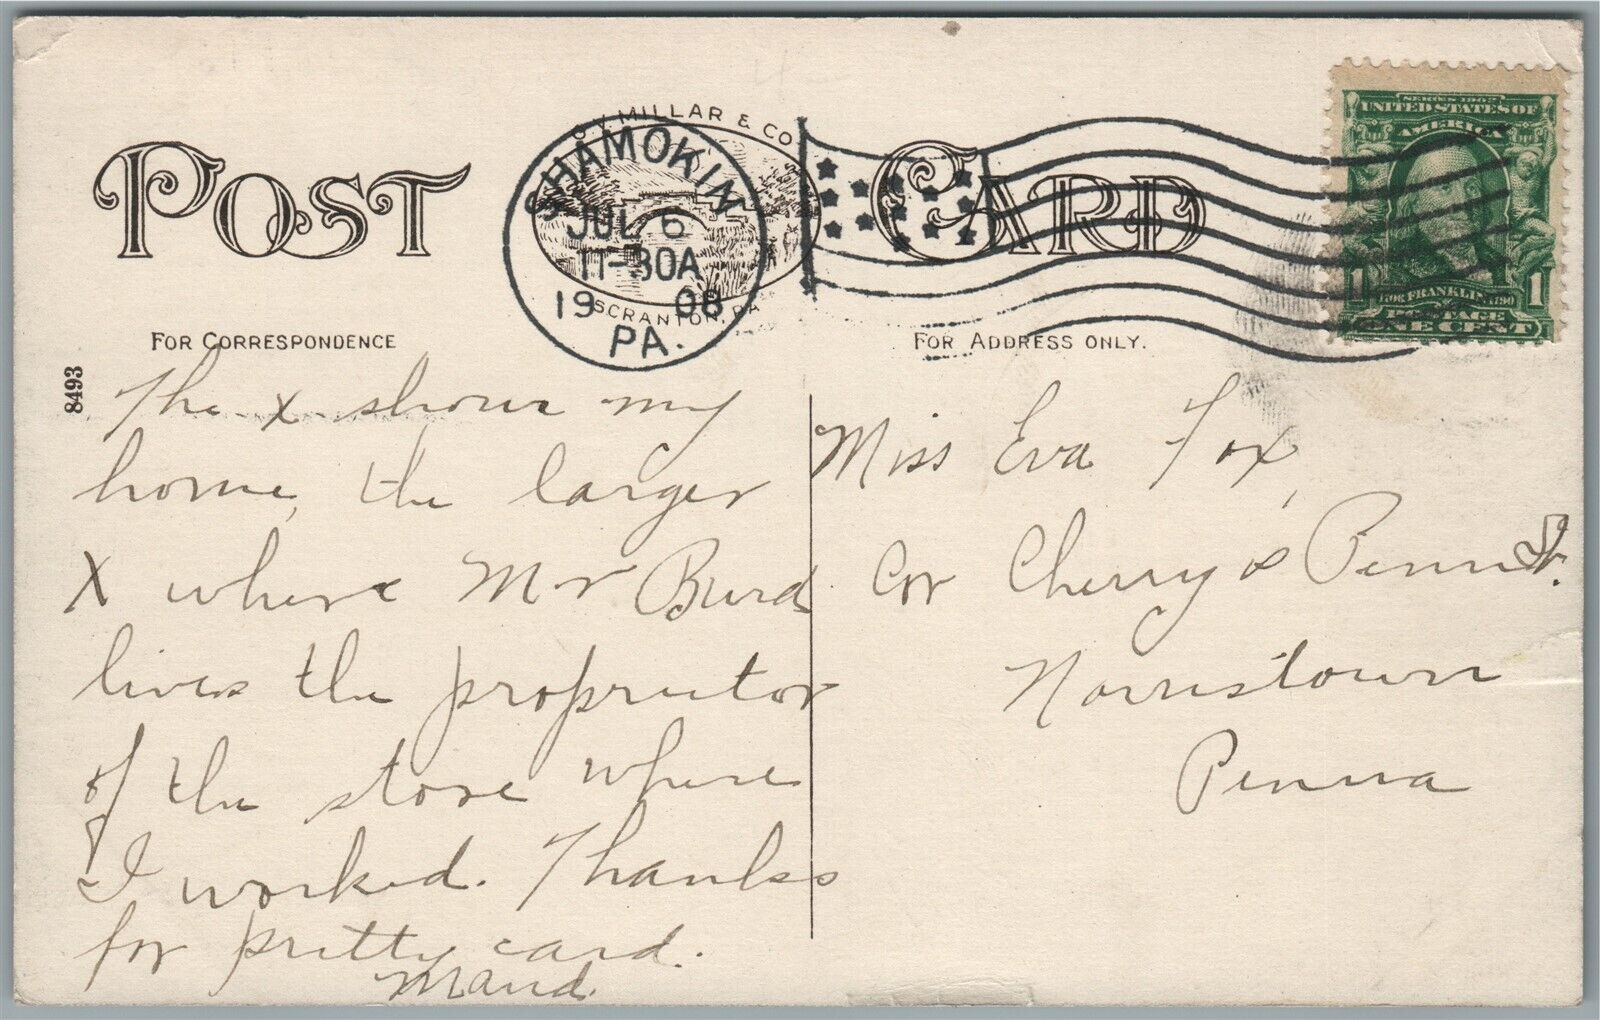 POST CARD
C. V. MILLAR & CO.
SCRANTON, PA
SHAMOKIN
JUL 6
11-30A
1908
PA.
SERIES 1902
UNITED STATES OF
AMERICA
1 1
1706 FRANKLIN 1790
POSTAGE
ONE CENT
FOR CORRESPONDENCE
FOR ADDRESS ONLY.
8493
The x shows my
home, the larger
X where Mr Burd
lives the proprietor
of the store where
I worked. Thanks
for pretty card.
Maud.
Miss Eva Fox,
Cor Cherry & Penn St.
Norristown
Penna